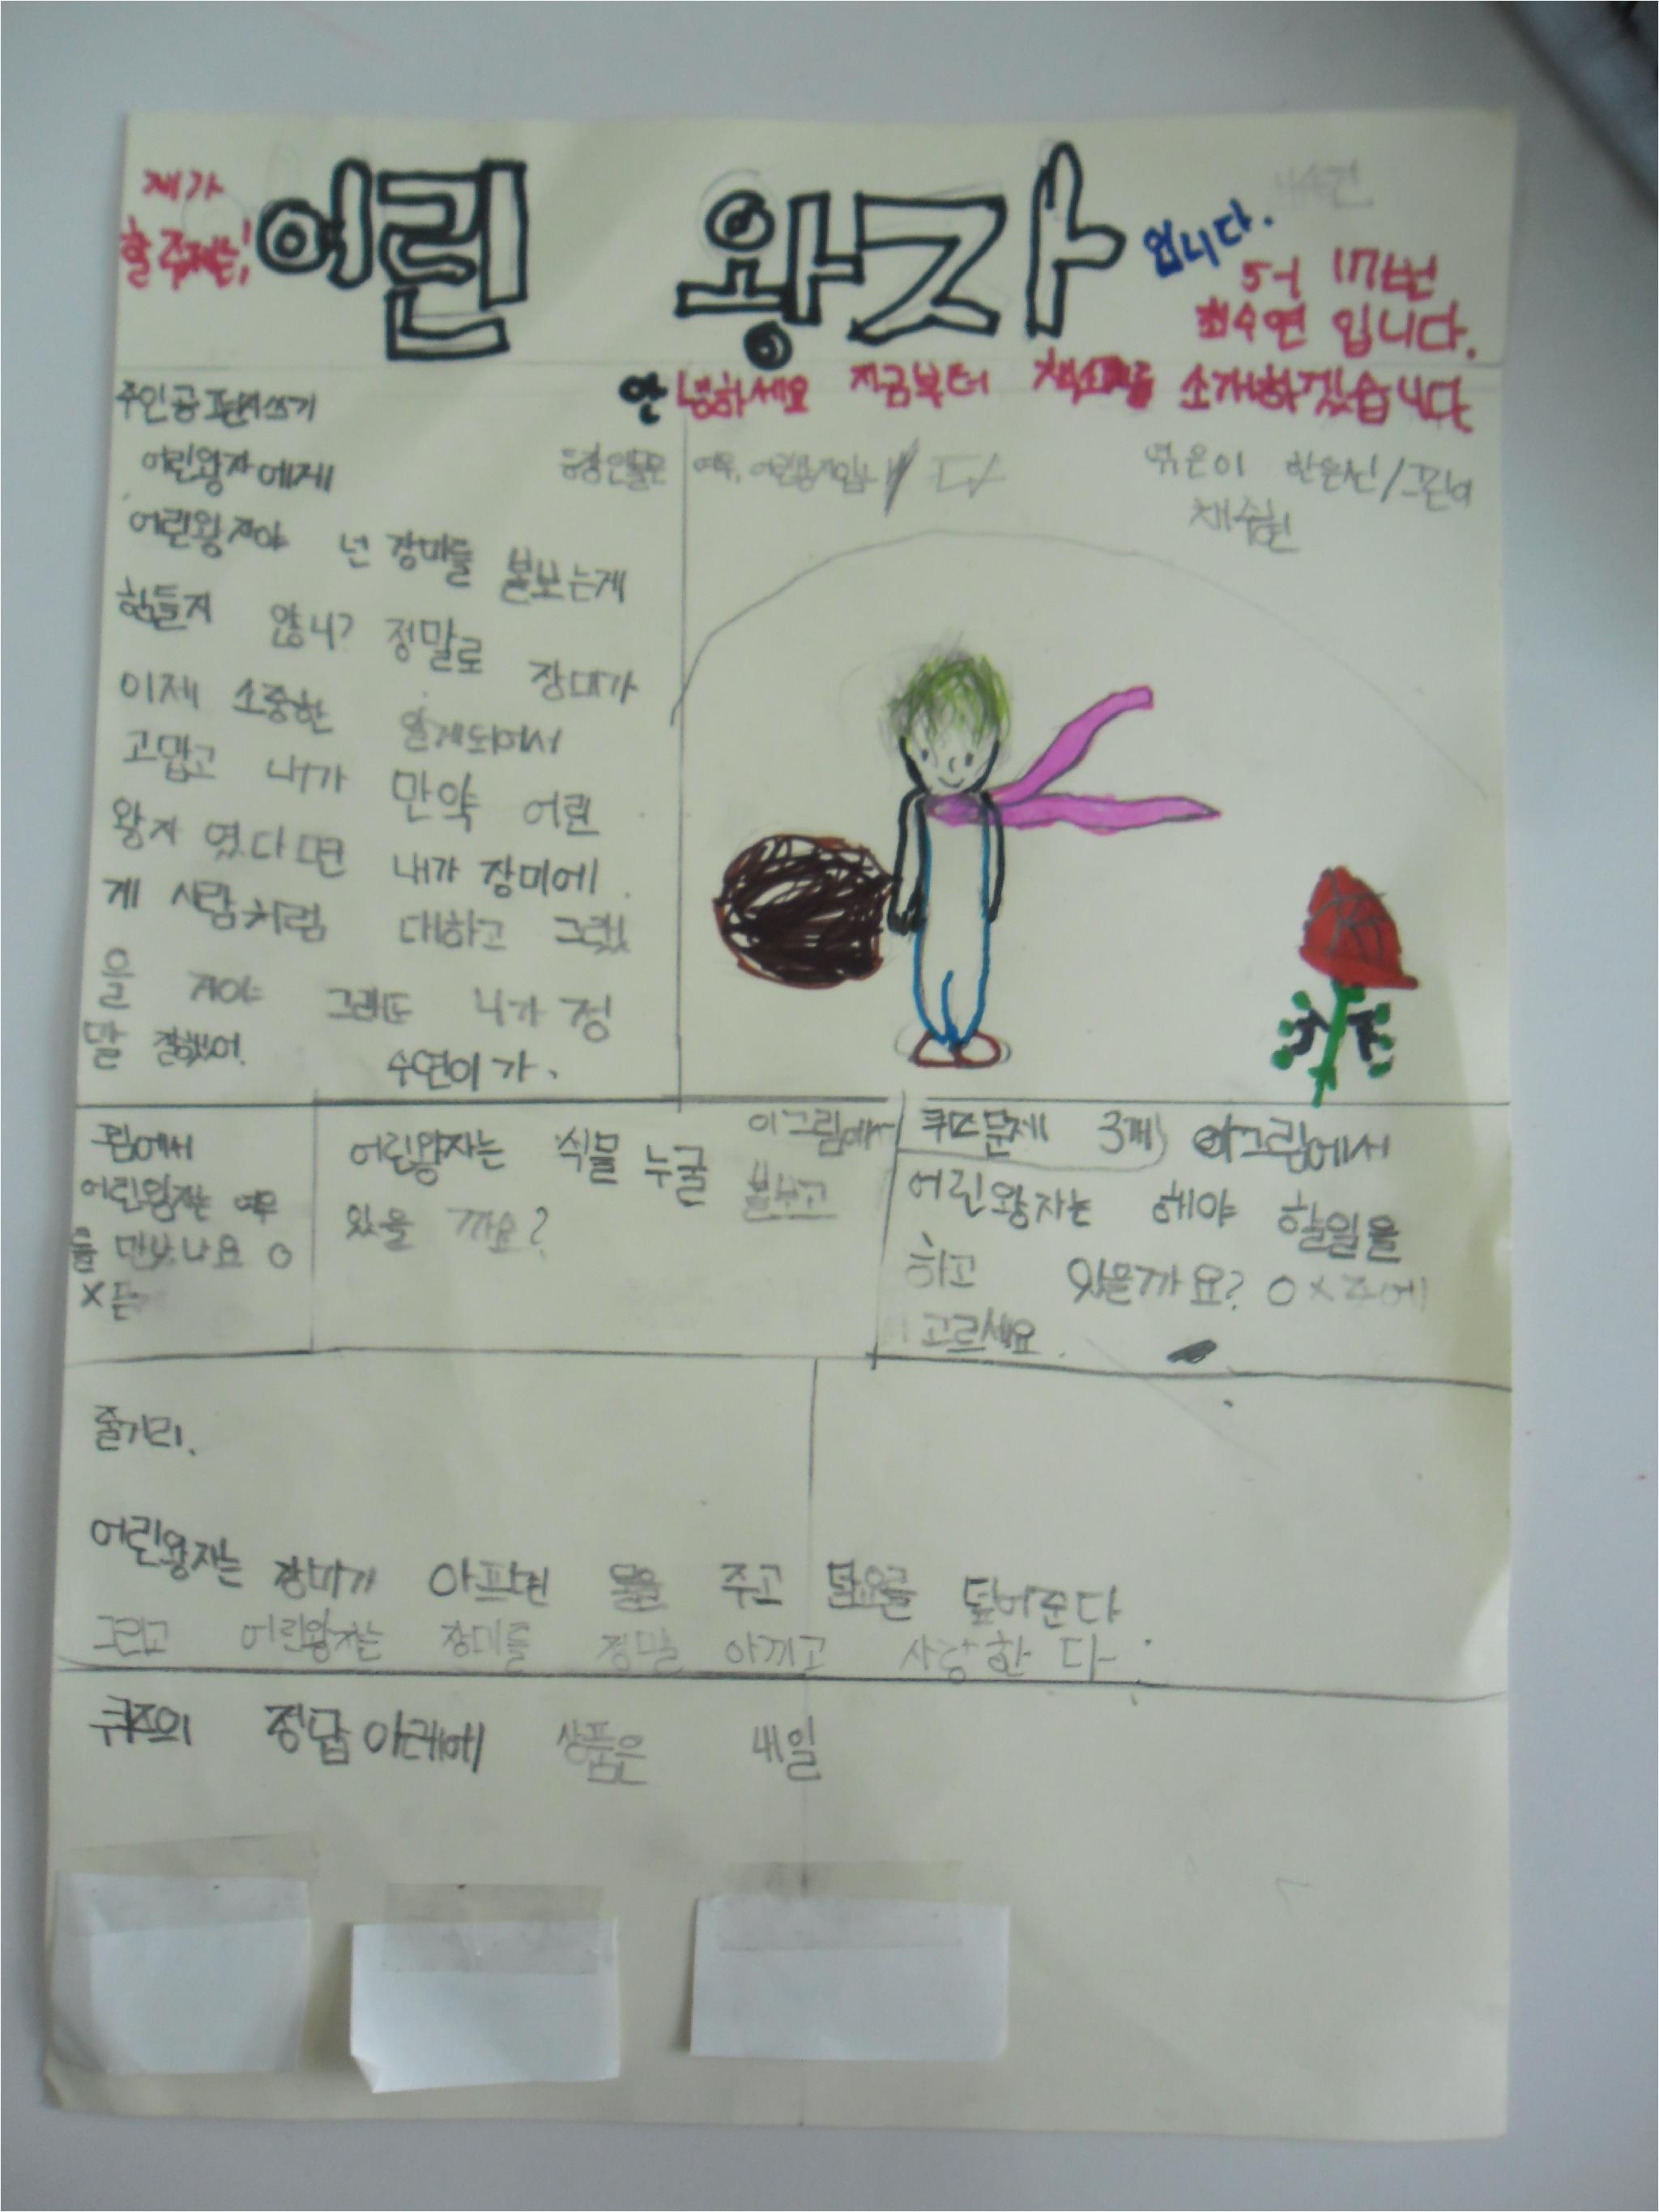 제가
할 주제는!
어린 왕자
입니다.
5-1 17번
최수연 입니다.
안녕하세요 지금부터 책소개를 소개하겠습니다.
주인공 편지쓰기
어린왕자에게
어린왕자야 넌 장미를 볼보는게
힘들지 않니? 정말로 장미가
이제 소중한 알게되어서
고맙고 내가 만약 어린
왕자 였다면 내가 장미에
게 사람처럼 대하고 그랬
을 거야 그래도 니가 정
말 잘했어.
수연이가.
등장인물은 여우, 어린왕자입니다
엮은이 한은선/그린이
채수현
그림에서
어린왕자는 여우
를 만났나요 O
X 는
이그림에서
어린왕자는 식물 누굴 볼보고
있을 까요?
퀴즈문제 3개) 이그림에서
어린왕자는 해야 할일을
하고 있을까요? O X 중에
고르세요.
줄거리.
어린왕자는 장미가 아프면 물을 주고 담요를 덮어준다
그리고 어린왕자는 장미를 정말 아끼고 사랑한다.
퀴즈의 정답 아래에 상품은 내일